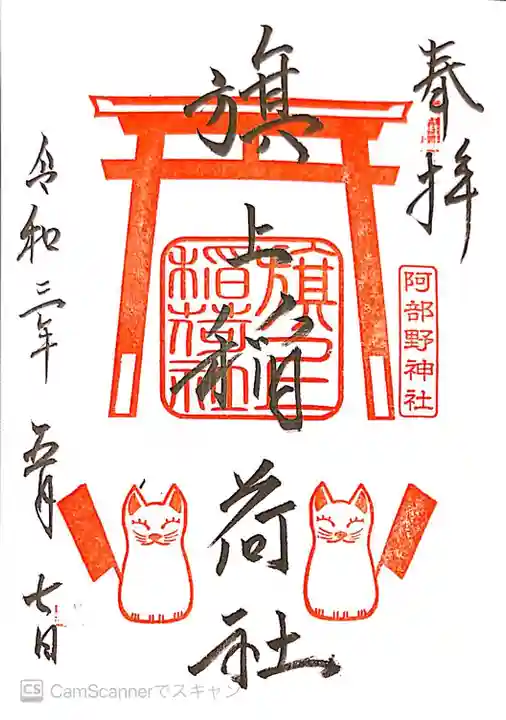 奉拝
阿部野神社
旗上稲荷社
旗上稲荷社
令和三年 五月 七日
CS CamScannerでスキャン